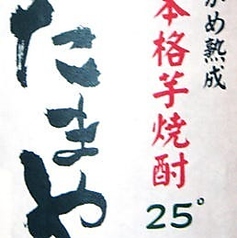 かめ熟成
本格芋焼酎
25°
たまや